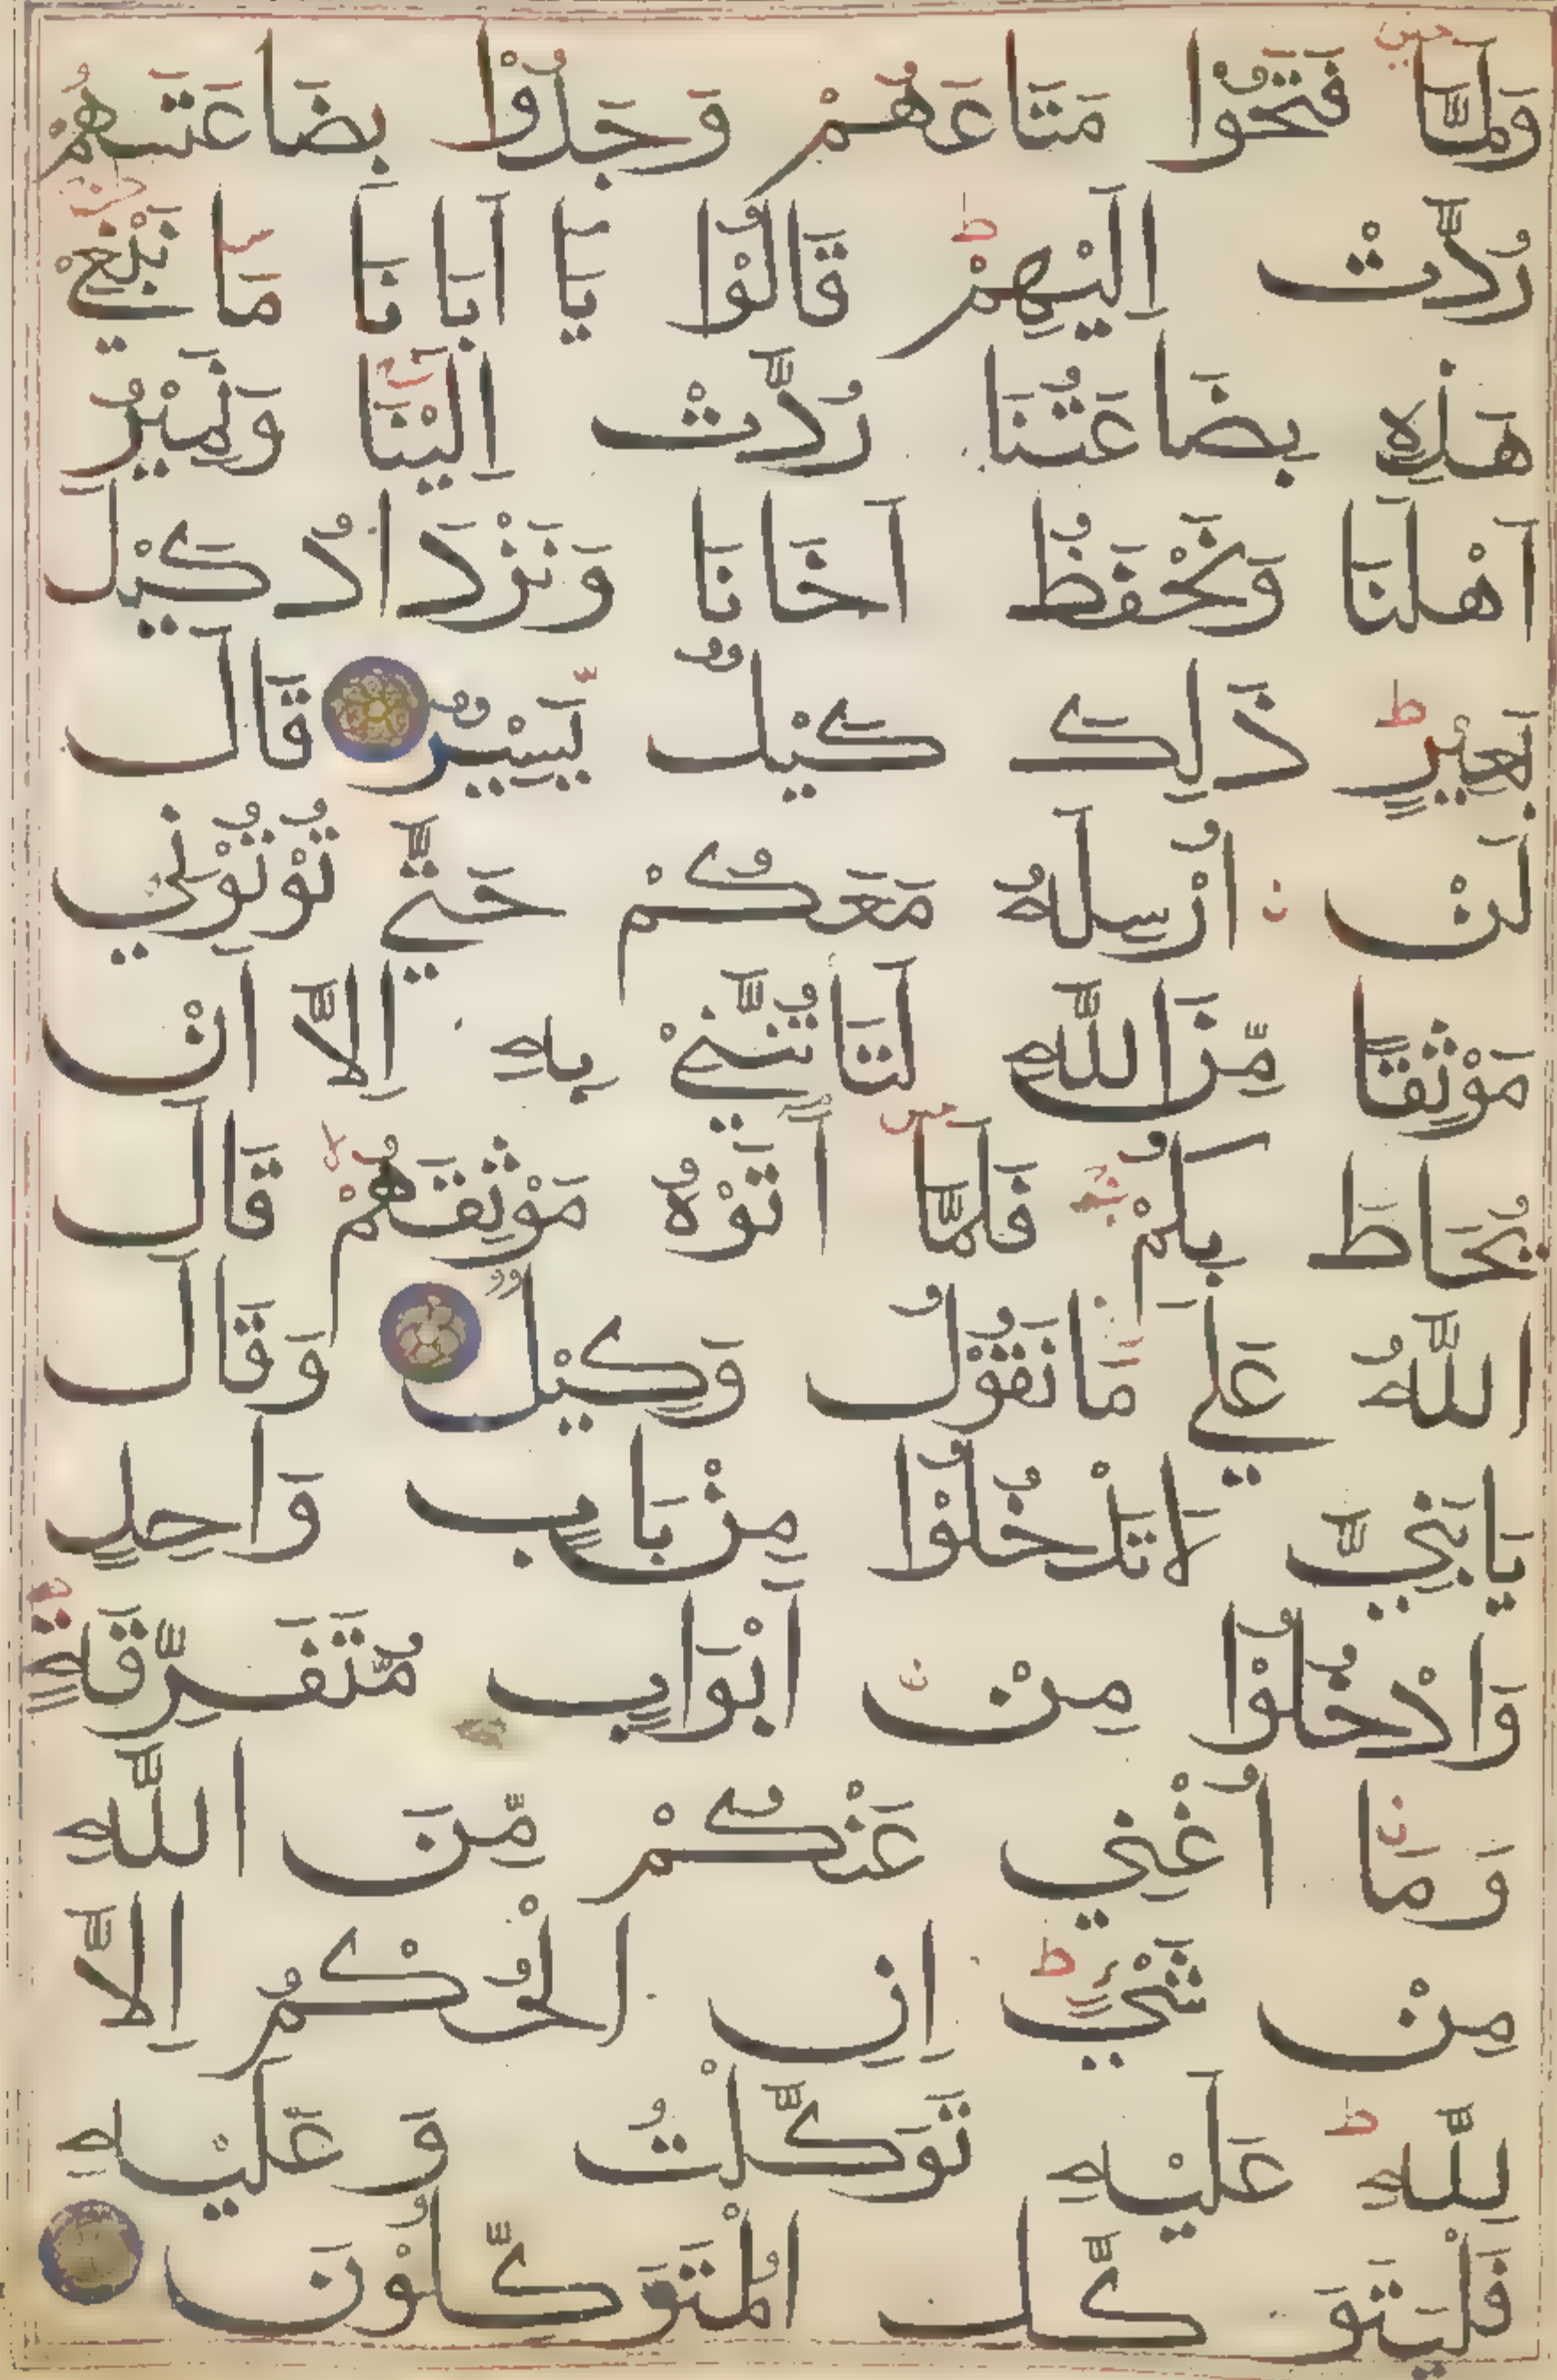 وَلَمَّا فَتَحُوْا مَتَاعَهُمْ وَجَدُوْا بِضَاعَتَهُمْ
رُدَّتْ اِلَيْهِمْ ط قَالُوْا يَا اَبَانَا مَا نَبْغِيْ
هَذِهِ بِضَاعَتُنَا رُدَّتْ اِلَيْنَا وَنَمِيْرُ
اَهْلَنَا وَنَحْفَظُ اَخَانَا وَنَزْدَادُ كَيْلَ
بَعِيْرٍ ط ذَالِكَ كَيْلٌ يَسِيْرٌ قَالَ
لَنْ اُرْسِلَهُ مَعَكُمْ حَتَّي تُؤْتُوْنِي
مَوْثِقًا مِّنَ اللّٰهِ لَتَاتُنَّنِيْ بِهِ اِلَّا اَنْ
يُحَاطَ بِكُمْ فَلَمَّا اَتَوْهُ مَوْثِقَهُمْ قَالَ
اللّٰهُ عَلَي مَا نَقُوْلُ وَكِيْلٌ وَقَالَ
يَا بَنِيَّ لَا تَدْخُلُوْا مِنْ بَابٍ وَاحِدٍ
وَادْخُلُوْا مِنْ اَبْوَابٍ مُّتَفَرِّقَةٍ
وَمَا اُغْنِي عَنْكُمْ مِّنَ اللّٰهِ
مِنْ شَيْءٍ ط اِنِ الْحُكْمُ اِلَّا
لِلّٰهِ ط عَلَيْهِ تَوَكَّلْتُ وَ عَلَيْهِ
فَلْيَتَوَكَّلِ الْمُتَوَكِّلُوْنَ